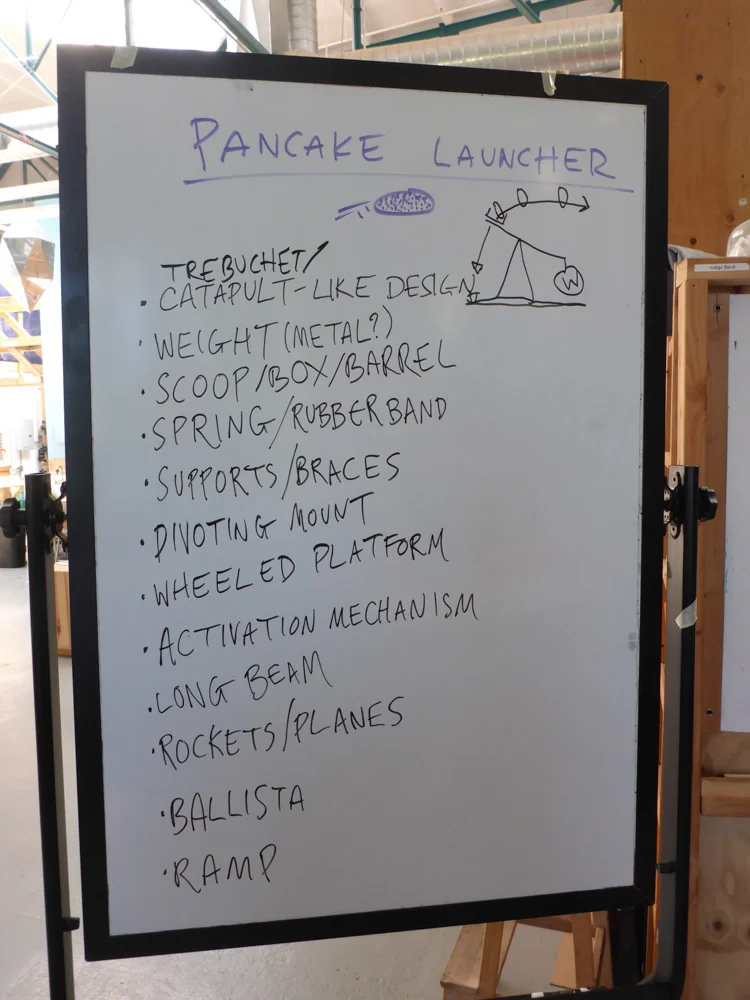 PANCAKE LAUNCHER
TREBUCHET/
· CATAPULT-LIKE DESIGN
· WEIGHT (METAL?)
· SCOOP/BOX/BARREL
· SPRING/RUBBERBAND
· SUPPORTS/BRACES
· PIVOTING MOUNT
· WHEELED PLATFORM
· ACTIVATION MECHANISM
· LONG BEAM
· ROCKETS/PLANES
· BALLISTA
· RAMP
W